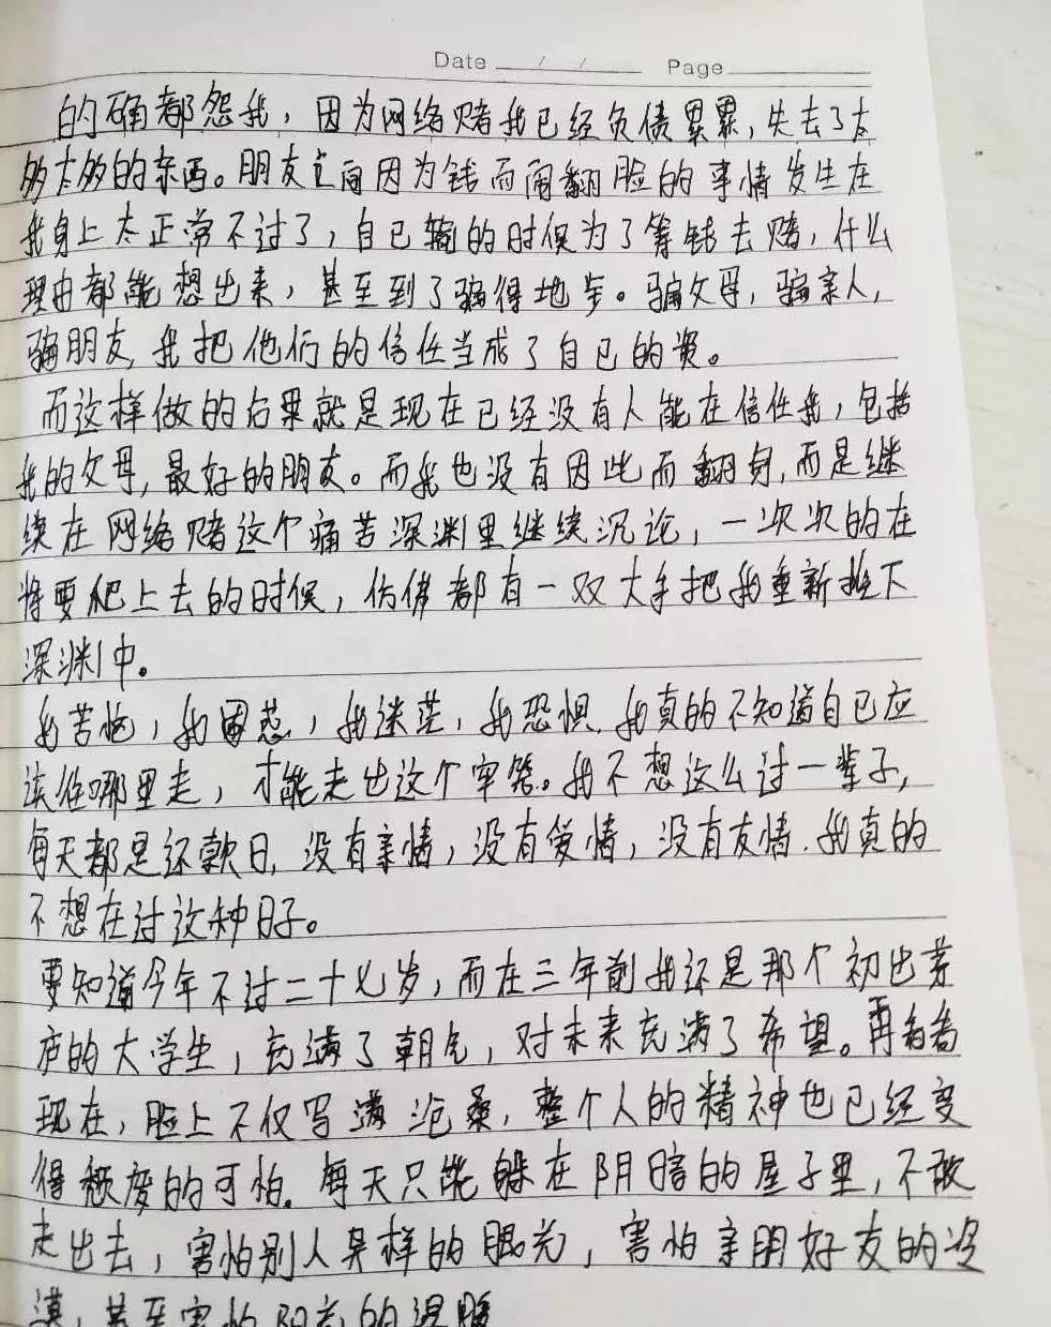 Date / / Page
的确都怨我，因为网络赌我已经负债累累，失去了太
多太多的东西。朋友之间因为钱而闹翻脸的事情发生在
我身上太正常不过了，自己输的时候为了筹钱去赌，什么
理由都能想出来，甚至到了骗得地步。骗父母，骗亲人，
骗朋友，我把他们的信任当成了自己的资。
而这样做的后果就是现在已经没有人能在信任我，包括
我的父母，最好的朋友。而我也没有因此而翻身，而是继
续在网络赌这个痛苦深渊里继续沉论，一次次的在
将要爬上去的时候，仿佛都有一双大手把我重新推下
深渊中。
我苦恼，我困惑，我迷茫，我恐惧，我真的不知道自己应
该往哪里走，才能走出这个牢笼。我不想这么过一辈子，
每天都是还款日，没有亲情，没有爱情，没有友情，我真的
不想在过这种日子。
要知道今年不过二十七岁，而在三年前我还是那个初出茅
庐的大学生，充满了朝气，对未来充满了希望。再看看
现在，脸上不仅写满沧桑，整个人的精神也已经变
得颓废的可怕。每天只能躲在阴暗的屋子里，不敢
走出去，害怕别人异样的眼光，害怕亲朋好友的冷
漠，甚至害怕阳光的温暖